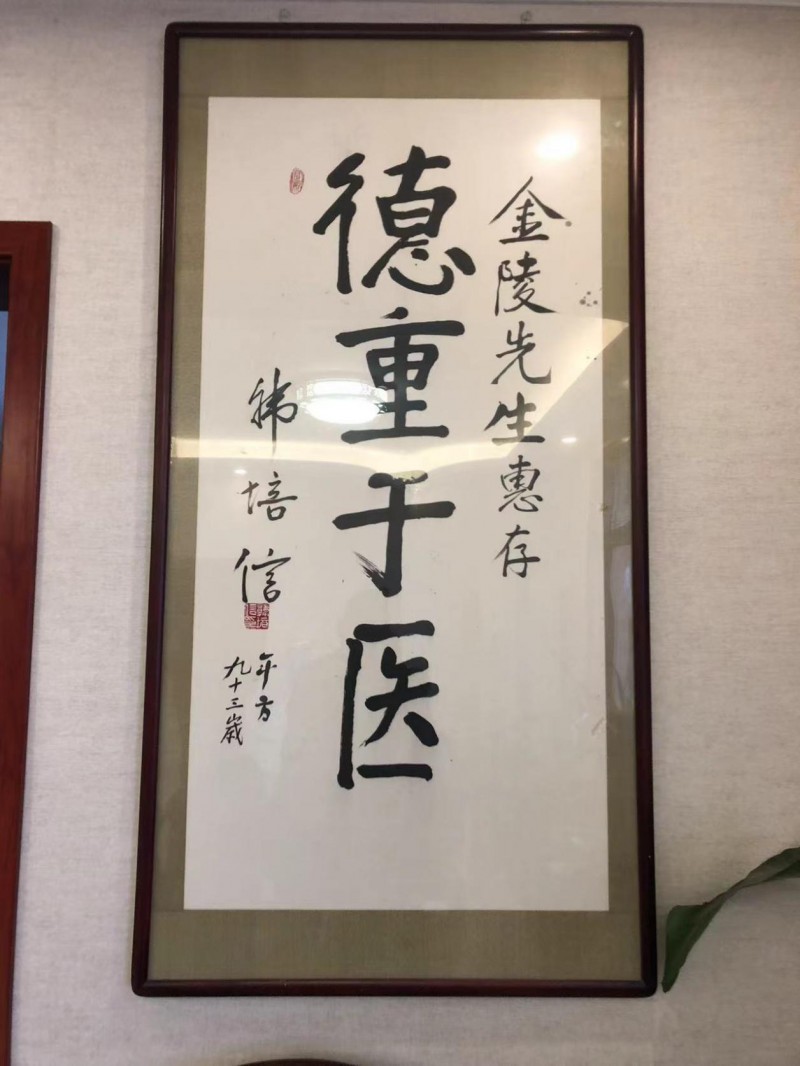 金陵先生惠存
德重于医
韩培信
年方
九十三歲